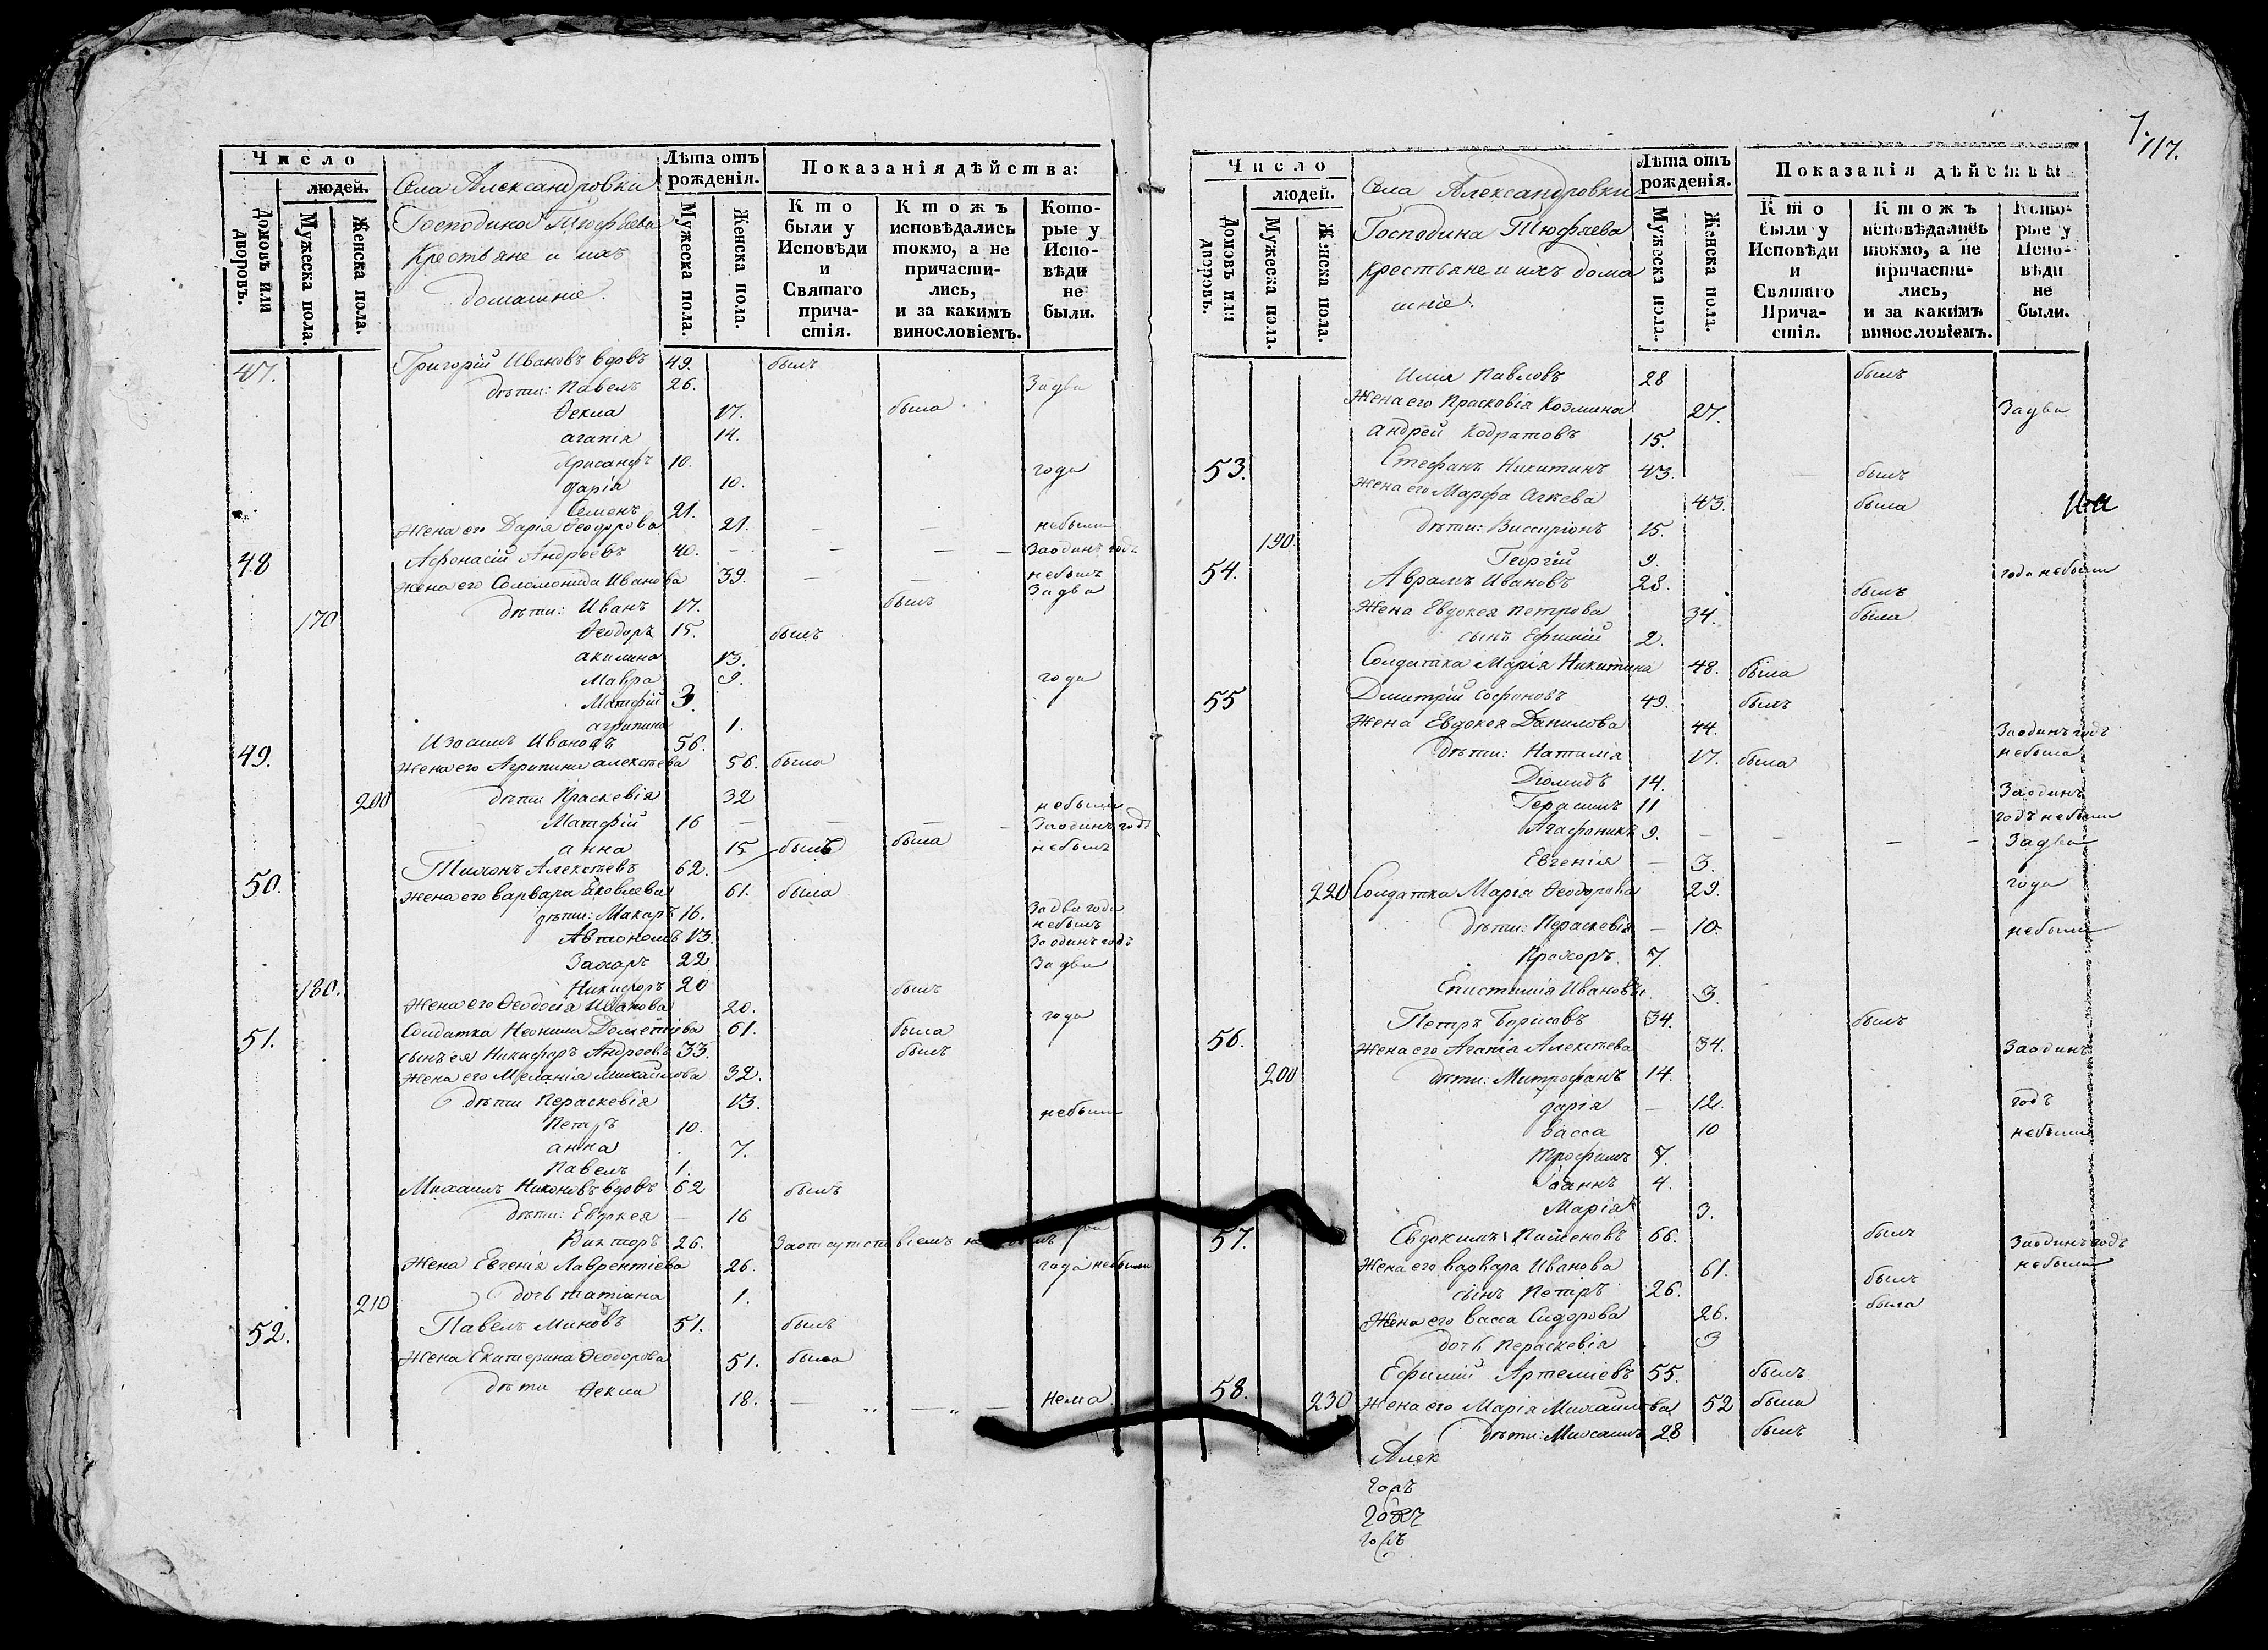 Число
людей.
Домовъ или дворовъ.
Мужеска пола.
Женска пола.
Села Александровки
Господина Тюфяева
Крестьяне и ихъ
домашніе.
Лѣта отъ рожденія.
Мужеска пола.
Женска пола.
Показанія дѣйства:
Кто были у Исповѣди и Святаго прича-стія.
Ктожъ исповѣдались токмо, а не причасти-лись, и за какимъ винословіемъ.
Кото-рые у Испо-вѣди не были.
47. Григорій Ивановъ вдовъ 49. былъ
дѣти: Павелъ 26. За два
Ѳекла 17. была
агапія 14.
Хрисанфъ 10. года
дарія 10.
Семенъ 21.
Жена его Дарія Ѳеодорова 21. — — небыли
48 Афонасій Андреевъ 40. — — — — Заодинъ годъ
Жена его Соломонида Иванова 39. — — небылъ
170 дѣти: Иванъ 17. былъ За два
Ѳеодоръ 15. былъ
акилина 13.
Мавра 9. года
Матфій 3.
агрипина 1.
49. Изосимъ Ивановъ 56.
Жена его Агрипина алексѣева 56. была
200 дѣти Праскевія 32 небыли
Матфій 16 — — — — Заодинъ годъ
анна 15 былъ была небылъ
50. Тихонъ Алексѣевъ 62.
Жена его варвара Яковлева 61. была
дѣти: Макаръ 16. За два года
небылъ
Автономъ 13. Заодинъ годъ
Захаръ 22 За два
180. Никифоръ 20 былъ
Жена его Ѳеодосія Иванова 20. года
51. Солдатка Неонила Дометіева 61. была
сынъ ея Никифоръ Андреевъ 33. былъ
Жена его Меланія михайлова 32.
дѣти Пераскевія 13. небыли
Петръ 10.
анна 7.
Павелъ 1.
Михаилъ Никоновъ вдовъ 62 былъ
дѣти: Евдокея — 16
Викторъ 26. Заотсутствіемъ
Жена Евгенія Лаврентіева 26. года небыли
210 дочь татіана 1.
52. Павелъ Миновъ 51. былъ
Жена Екатерина Ѳеодорова 51. была
дѣти Ѳекла 18. — „ — „ — нема.
7.
117.
Число
людей.
Домовъ или дворовъ.
Мужеска пола.
Женска пола.
Села Александровки
Господина Тюфяева
крестьяне и ихъ дома
шніе.
Лѣта отъ рожденія.
Мужеска пола.
Женска пола.
Показанія дѣйства
Кто были у Исповѣди и Святаго Прича-стія.
Ктожъ исповѣдались токмо, а не причасти-лись, и за какимъ винословіемъ.
Кото-рые у Испо-вѣди не были.
Илія Павловъ 28 былъ
Жена его Прасковія Козмина 27. За два
андрей Кодратовъ 15.
53. Стефанъ Никитинъ 43. былъ
Жена его Марфа 43. была
дѣти: Виссаріонъ 15.
190. Георгій 9.
54. Аврамъ Ивановъ 28. былъ года небыли
Жена Евдокея петрова 34. была
сынъ Ефимій 2.
Солдатка Марія Никитина 48. была
55 Димитрій Софоновъ 49. былъ
Жена Евдокея Данилова 44. Заодинъ годъ
дѣти: Наталія 17. была небыла
Діомидъ 14. Заодинъ
Герасимъ 11 годъ небыли
Агафоникъ 9. — — — — За два
Евгенія — 3.
220 Солдатка Марія Ѳеодорова 29. года
дѣти: Пераскевія — 10. небыли
Прохоръ 7.
Епистимія Иванова 3.
56. Петръ Борисовъ 34. былъ
Жена его Агапія Алексѣева 34. Заодинъ
200 дѣти: Митрофанъ 14.
дарія — 12. годъ
васса 10 небыли
Трофимъ 7.
Іоаннъ 4.
Марія 3.
57. Евдокимъ Пименовъ 66. былъ Заодинъ годъ
Жена его варвара Иванова 61. небыла
сынъ Петръ 26. былъ
Жена его васса Сидорова 26. была
дочь Пераскевія 3
58. Ефимій Артеміевъ 55. былъ
230 Жена его Марія Михайлова 52 была
дѣти: Михаилъ 28 былъ
Алек
горъ
годъ